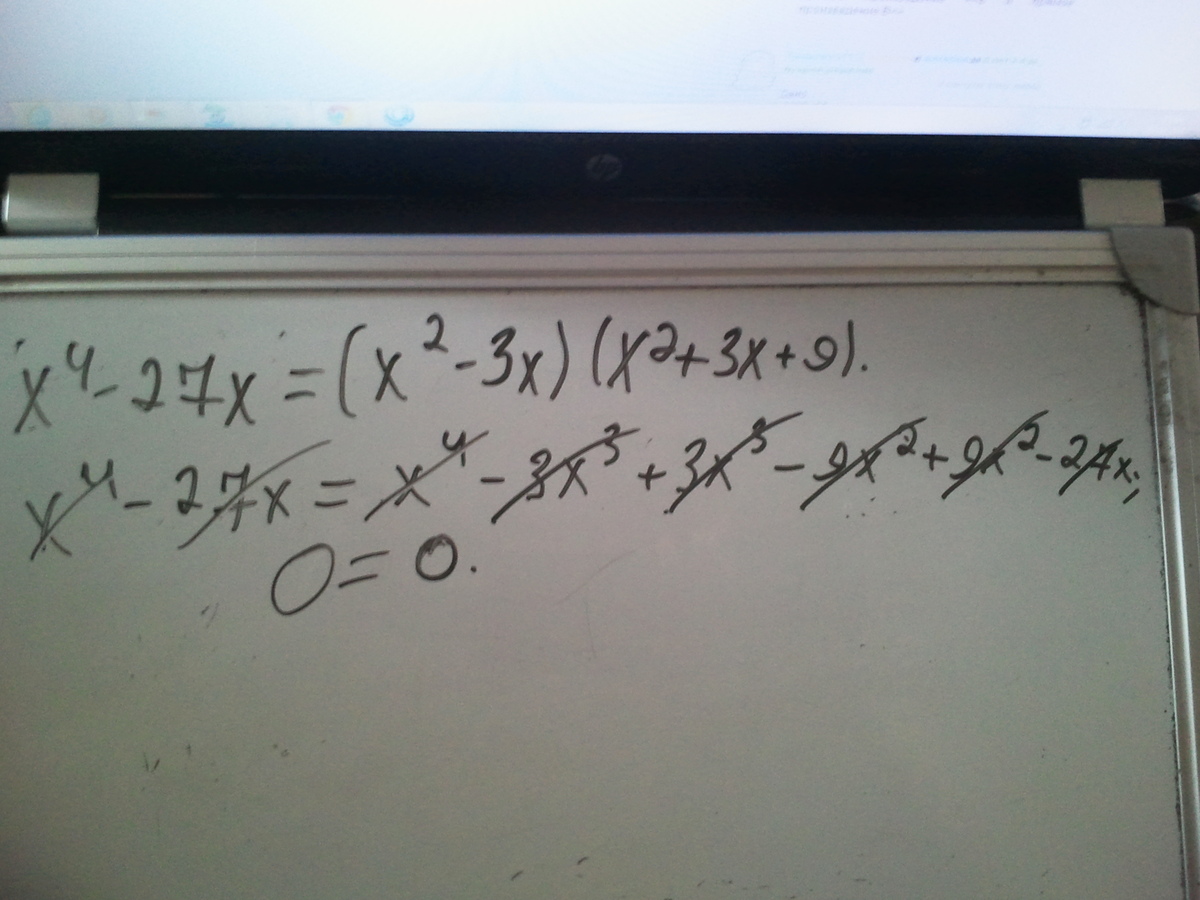 hp
x⁴ - 27x = (x² - 3x) (x² + 3x + 9).
x⁴ - 27x = x⁴ - 3x³ + 3x³ - 9x² + 9x² - 27x;
0 = 0.